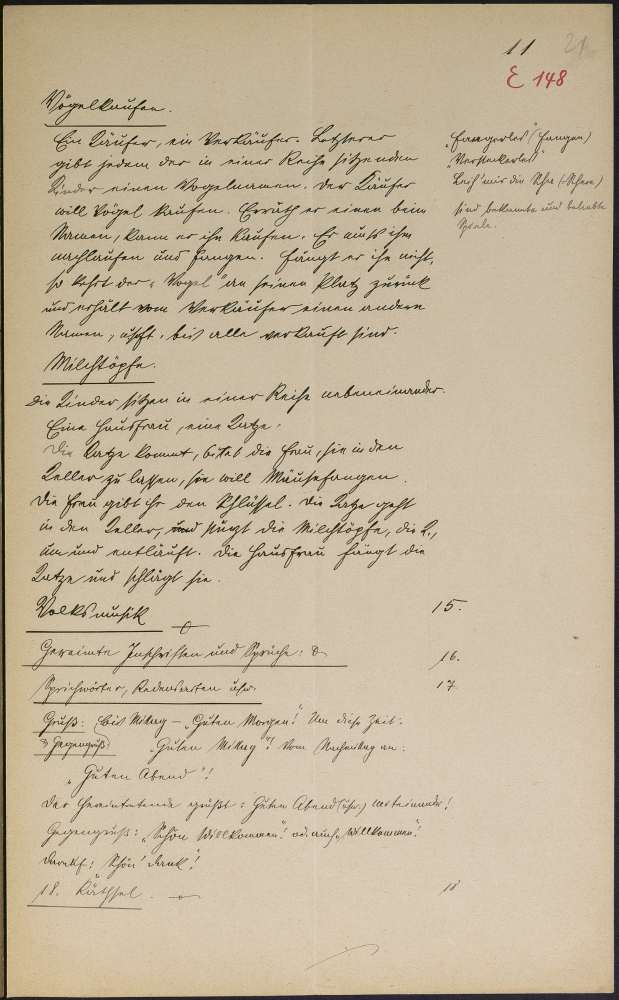 11 21
E 148
Vögelkaufen.
Ein Käufer, ein Verkäufer. Letzterer
gibt jedem der in einer Reihe sitzenden
Kinder einen Vogelnamen. Der Käufer
will Vögel kaufen. Errät er einen beim
Namen, kann er ihn kaufen. Er muß ihm
nachlaufen und fangen. Fängt er ihn nicht,
so kehrt der „Vogel" an seinen Platz zurück
und erhält vom Verkäufer einen andern
Namen, usf., bis alle verkauft sind.
„Fangerles" (Fangen)
„Versteckerles"
Leih' mir die Scher (-Schere)
sind bekannte und beliebte
Spiele.
Milchtöpfe.
Die Kinder sitzen in einer Reihe nebeneinander.
Eine Hausfrau, eine Katze.
Die Katze kommt, bittet die Frau, sie in den
Keller zu lassen, sie will Mäusefangen.
Die Frau gibt ihr den Schlüssel. Die Katze geht
in den Keller, und stürzt die Milchtöpfe, die K.,
um und entläuft. Die Hausfrau fängt die
Katze und schlägt sie.
Volksmusik 15.
Gereimte Inschriften und Sprüche: 16.
Sprichwörter, Redensarten usw. 17
Gruß: bis Mittag – „Guten Morgen"! Um diese Zeit:
& Gegengruß: „Guten Mittag"! Vom Nachmittag an:
„Guten Abend"!
Der Hereintretende grüßt: Guten Abend (usw.) miteinander!
Gegengruß: „Schön Willkommen"! od. auch „Willkommen"!
darauf: Schön' Dank"!
18. Räthsel. 18